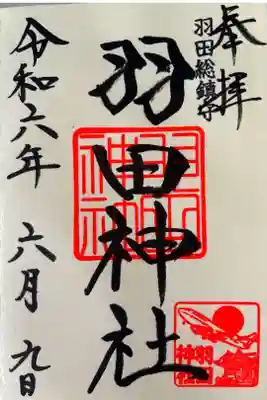 奉拝
羽田総鎮守
羽田神社
令和六年 六月 九日
羽田神社